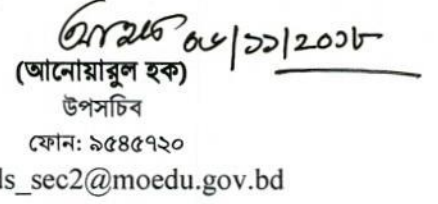 ০৮/১১/২০১৮
(আনোয়ারুল হক)
উপসচিব
ফোন: ৯৫৪৫৭২০
ls_sec2@moedu.gov.bd